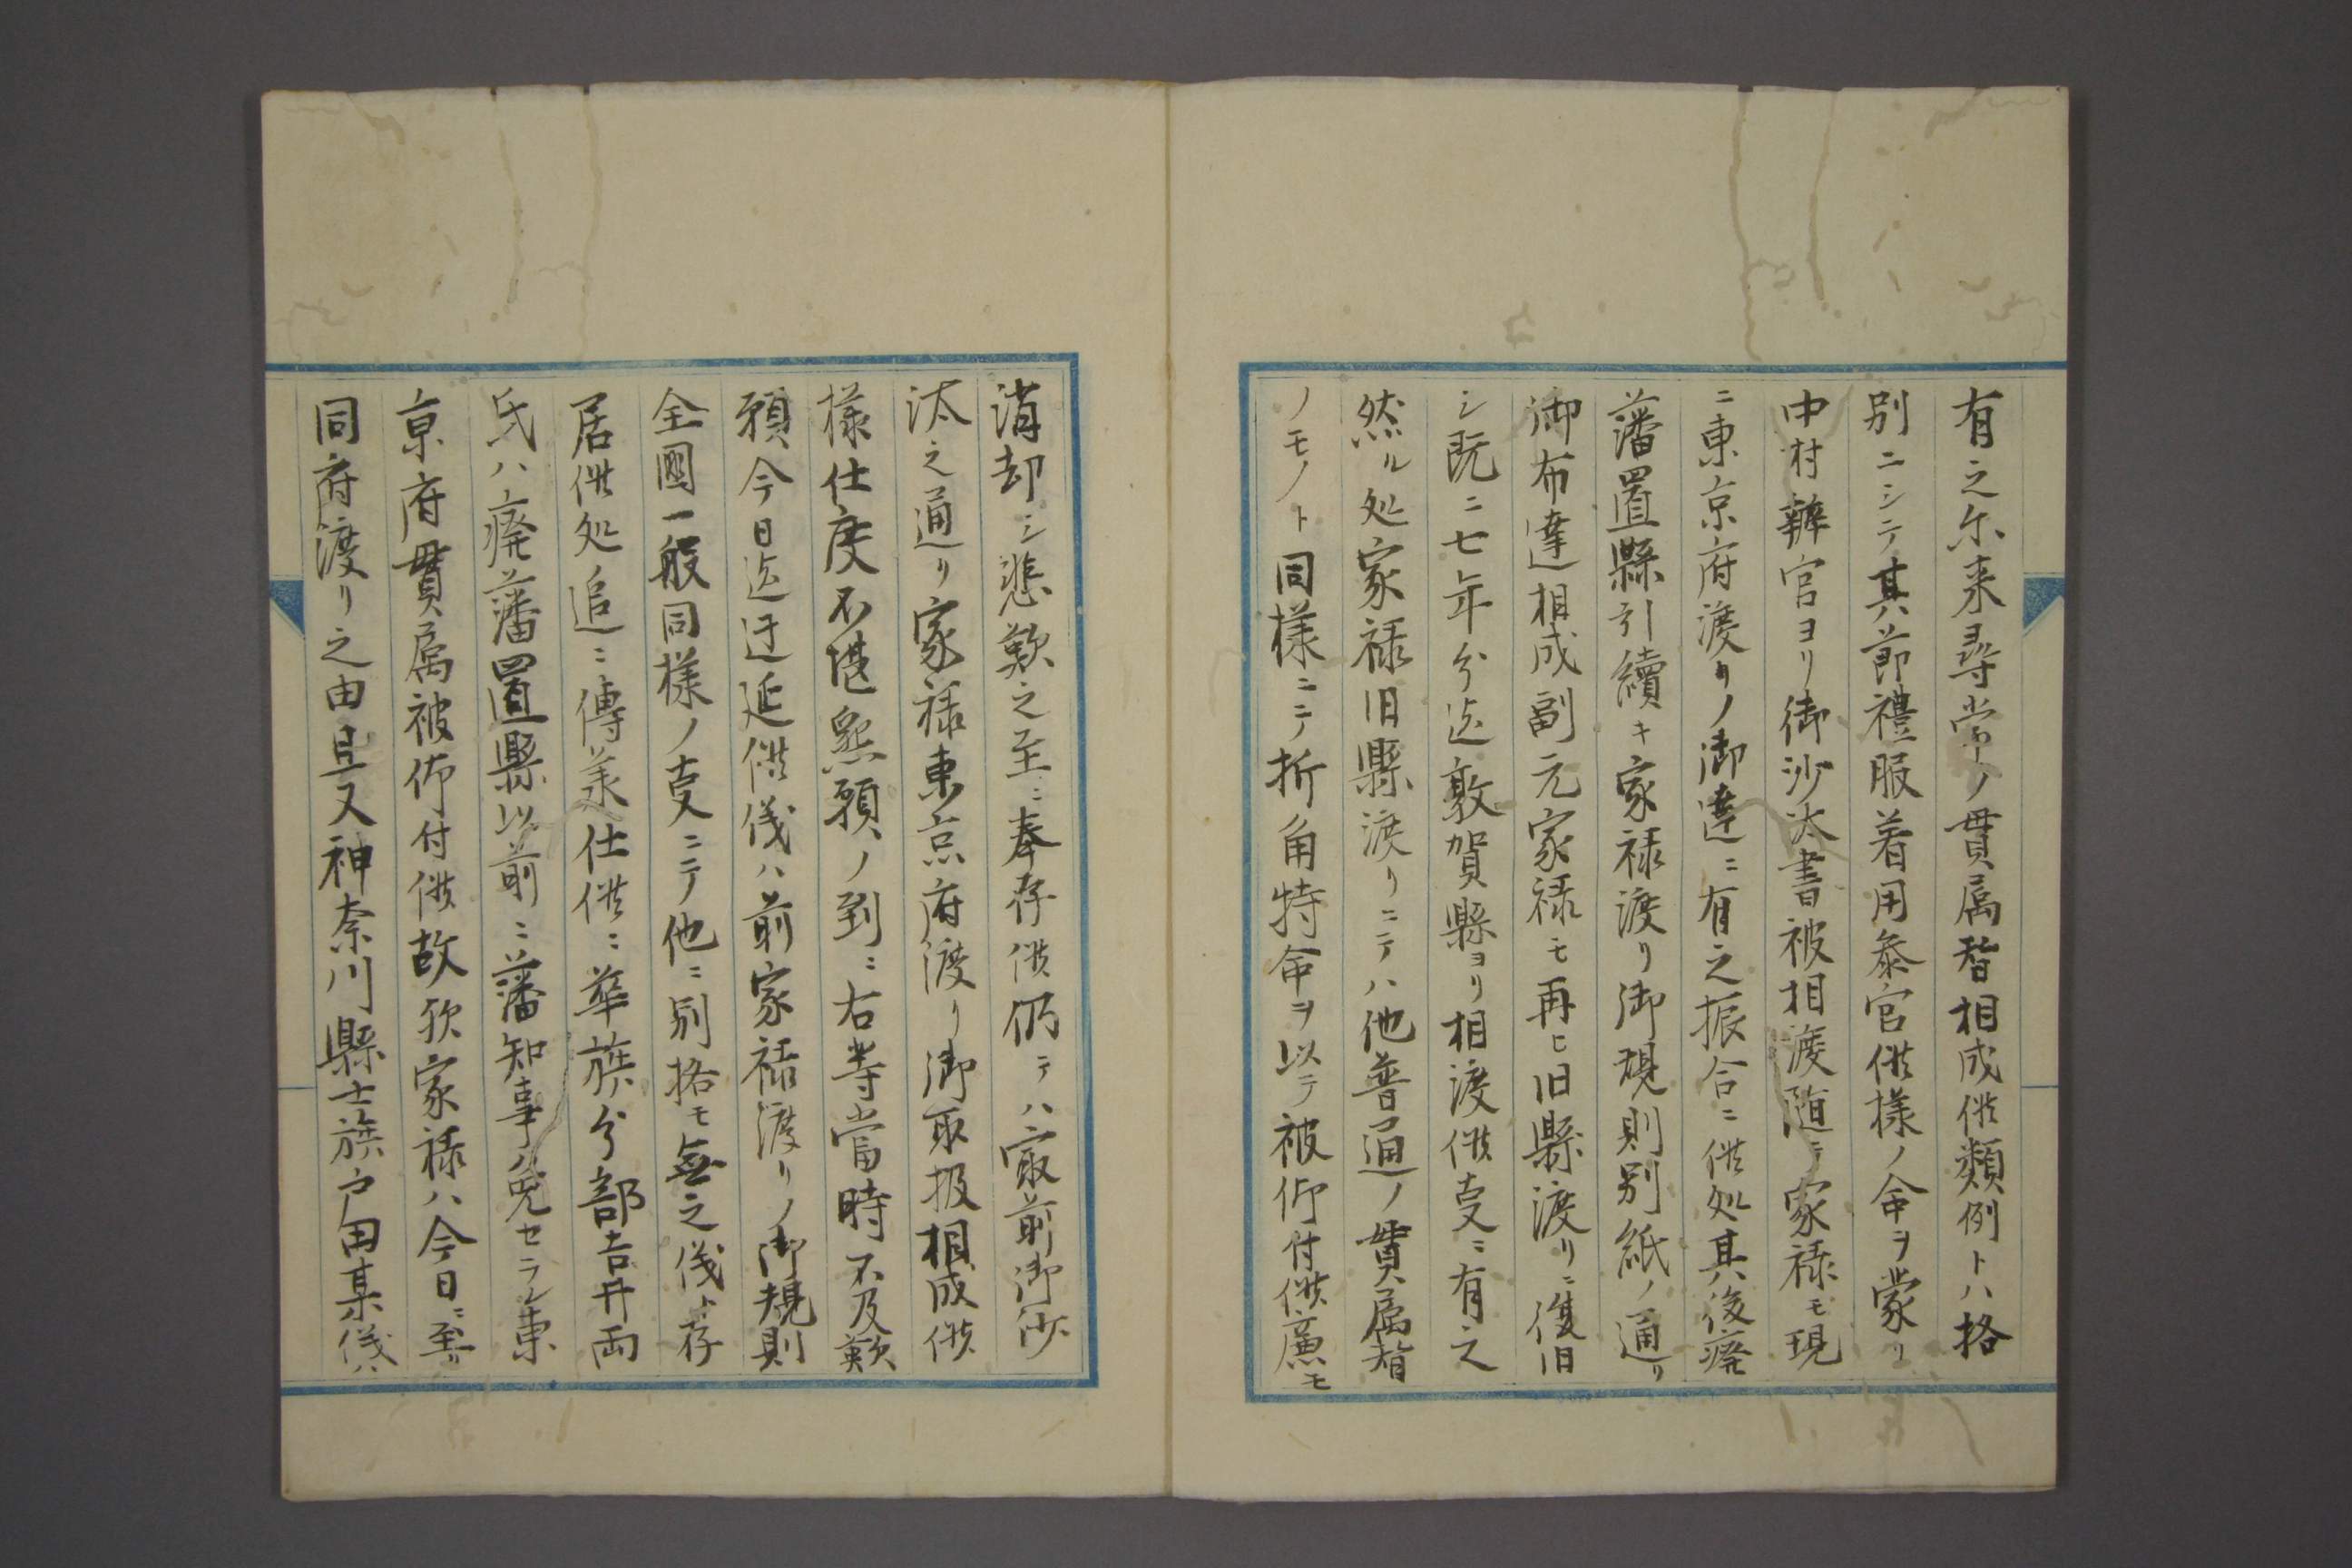 有之尓来尋常ノ貫属替相成候類例トハ格
別ニシテ其節禮服着用参官候様ノ命ヲ蒙リ
中村辨官ヨリ御沙汰書被相渡随テ家禄モ現
ニ東京府渡リノ御達ニ有之振合ニ候処其後廃
藩置縣引續キ家禄渡リ御規則別紙ノ通リ
御布達相成副元家禄モ再ヒ旧縣渡リニ復旧
シ既ニ七年分迄敦賀縣ヨリ相渡候㕝ニ有之
然ル処家禄旧縣渡リニテハ他普通ノ貫属替
ノモノト同様ニテ折角特命ヲ以テ被仰付候廉モ
消却シ悲歎之至ニ奉存候仍テハ最前御沙
汰之通リ家禄東京府渡リ御取扱相成候
様仕度不堪懇願ノ到ニ右等當時不及歎
願今日迄迂延候儀ハ前家禄渡リノ御規則
全國一般同様ノ㕝ニテ他ニ別格モ無之儀ト存
居候処追ニ傳羕仕候ニ華族分部吉井両
氏ハ廃藩置縣以前ニ藩知事ノ免セラレ東
京府貫属被仰付候故欤家禄ハ今日ニ至リ
同府渡リ之由且又神奈川縣士族戸田某儀ハ